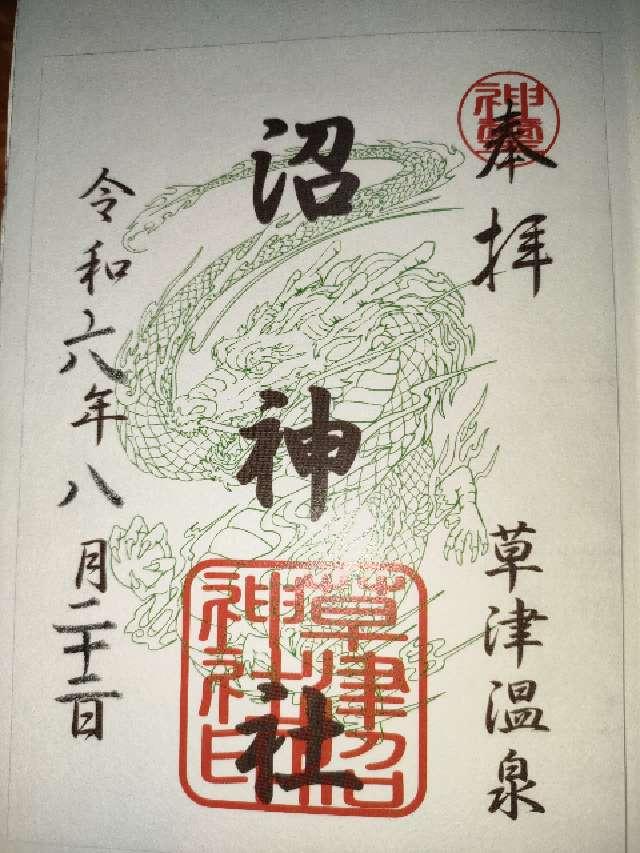 奉拝
草津温泉
沼神社
草津沼
神社印
令和六年八月二十二日